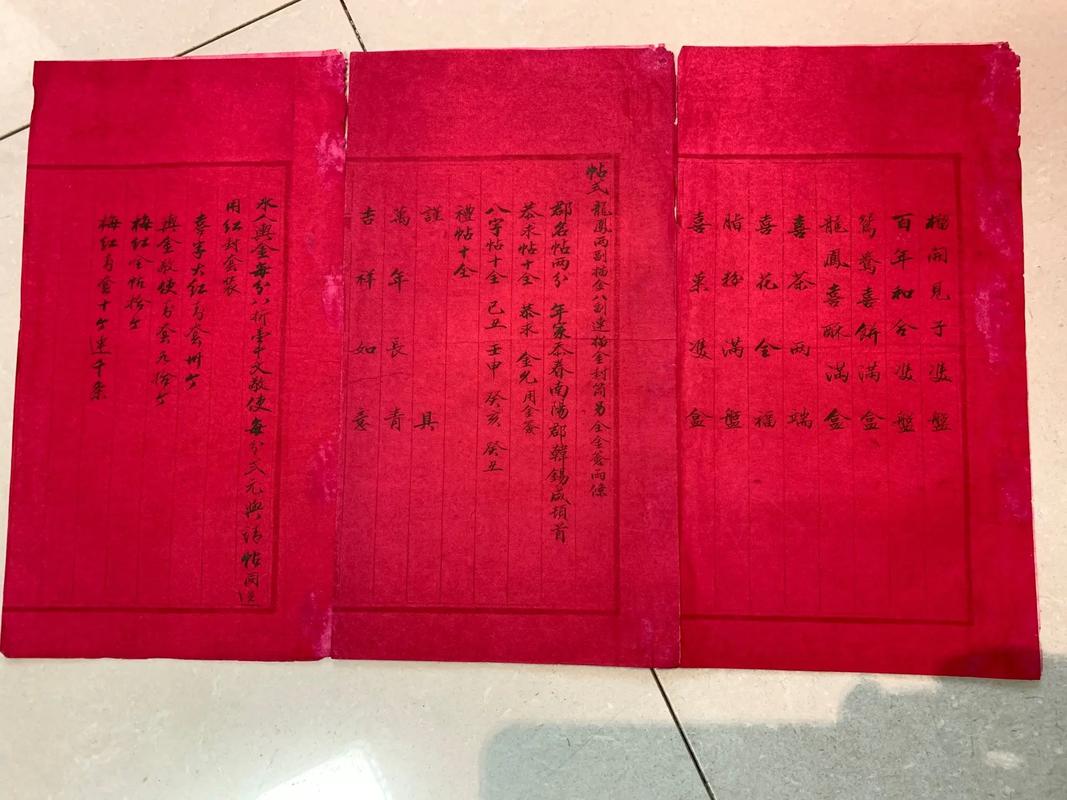 榴開見子雙盤
百年和合雙盤
鴛鴦喜餅滿盒
龍鳳喜酥滿盒
喜茶兩端
喜花全福
脂粉滿盤
喜菓雙盒
帖式龍鳳兩副描金八副連描金封筒易全金簽兩條
郡名帖兩分 年家忝眷南陽郡韓錫成頓首
恭求帖十全 恭求 金允用金簽
八字帖十全 己丑 壬申 癸亥 癸丑
禮帖十全
謹具
萬年長青
吉祥如意
冰人輿金每分八折壹千文敬使每分弍元與請帖同送
用紅封套裝
喜字大紅馬套卅个
輿金敬使馬套九拾个
梅紅全帖拾个
梅紅馬套十个連千条